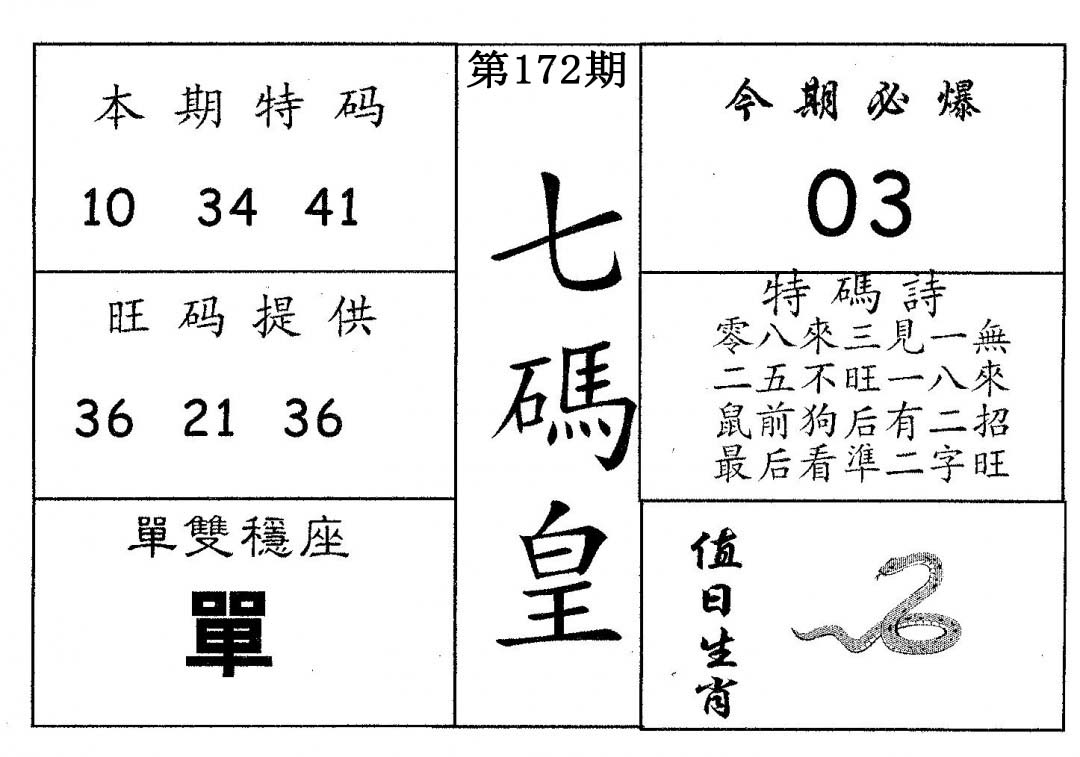 第172期
七
碼
皇
本期特码
10 34 41
旺码提供
36 21 36
單雙穩座
單
今期必爆
03
特碼詩
零八來三見一無
二五不旺一八來
鼠前狗后有二招
最后看準二字旺
值日生肖